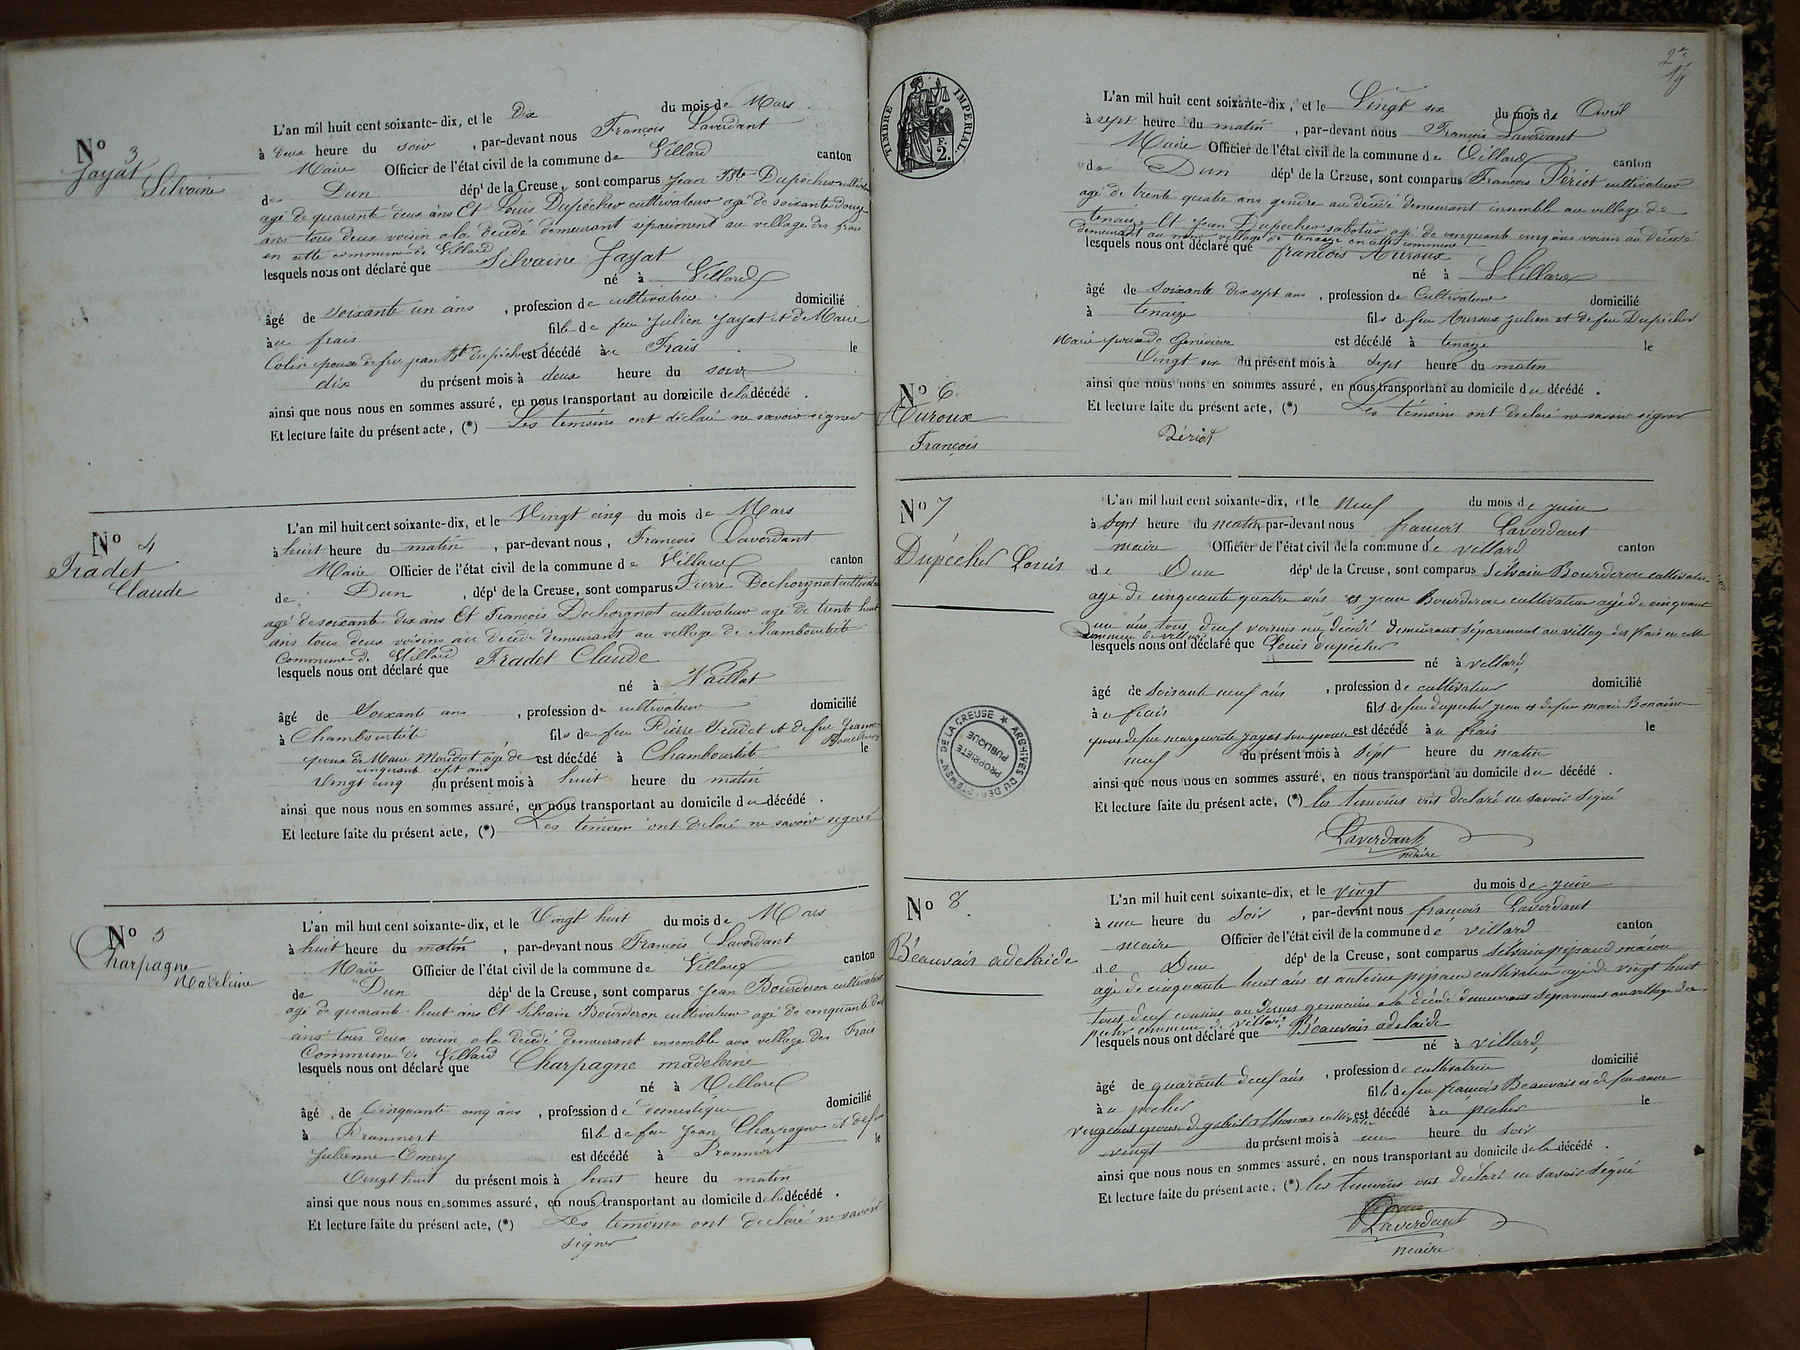 L'an mil huit cent soixante-dix, et le Dix du mois de Mars.
à deux heure du soir, par-devant nous François Laverdant
Maire Officier de l'état civil de la commune de Villard canton
de Dun dép^t de la Creuse, sont comparus Jean B^te Dupêcher
agé de quarante deux ans Et Louis Dupêcher cultivateur agé de soixante douze
ans tous deux voisin a la décédé demeurant séparément au village des frais
en cette commune de Villard
N° 3
Jayat
Silvaine
lesquels nous ont déclaré que Silvaine Jayat
né à Villard
âgé de soixante un ans, profession de cultivateur domicilié
à au frais fille de feu Julien Jayat et de Marie
est décédé au Frais le
dix du présent mois à deux heure du soir
ainsi que nous nous en sommes assuré, en nous transportant au domicile de la décédé.
Et lecture faite du présent acte, (*) Les témoins ont déclaré ne savoir signer
N° 4
Fradet
Claude
L'an mil huit cent soixante-dix, et le Vingt cinq du mois de Mars
à huit heure du matin, par-devant nous, François Laverdant
Maire Officier de l'état civil de la commune de Villard canton
de Dun, dép^t de la Creuse, sont comparus Pierre Dechorgnat
agé de soixante dix ans Et François Dechorgnat cultivateur agé de trente huit
ans tous deux voisins au décédé demeurant au village de
Commune de Villard
lesquels nous ont déclaré que Fradet Claude
né à Naillat
âgé de Soixante ans, profession de cultivateur domicilié
à Chambourtit fils de feu Pierre Fradet et de feu Jeanne
est décédé à Chambourtit le
Vingt cinq du présent mois à huit heure du matin
ainsi que nous nous en sommes assuré, en nous transportant au domicile du décédé.
Et lecture faite du présent acte, (*) Les témoins ont déclaré ne savoir signer
N° 5
Charpagne
Madeleine
L'an mil huit cent soixante-dix, et le Vingt huit du mois de Mars
à huit heure du matin, par-devant nous François Laverdant
Maire Officier de l'état civil de la commune de Villard canton
de Dun dép^t de la Creuse, sont comparus Jean Bourderon cultivateur
agé de quarante huit ans Et Silvain Bourderon cultivateur agé de cinquante
ans tous deux voisin a la décédé demeurant ensemble aux village des Frais
Commune de Villard
lesquels nous ont déclaré que Charpagne madeleine
né à Villard
âgé de Cinquante cinq ans, profession de domestique domicilié
à fille de feu Jean Charpagne et de feu
Julienne Emery est décédé à le
Vingt huit du présent mois à huit heure du matin
ainsi que nous nous en sommes assuré, en nous transportant au domicile de la décédé.
Et lecture faite du présent acte, (*) Les témoins ont déclaré ne savoir
signer
TIMBRE IMPERIAL
F. 2.
L'an mil huit cent soixante-dix, et le Vingt six du mois de Avril
à sept heure du matin, par-devant nous François Laverdant
Maire Officier de l'état civil de la commune de Villard canton
de Dun dép^t de la Creuse, sont comparus François Périot cultivateur
agé de trente quatre ans gendre au décédé demeurant ensemble au village de
tenaize Et Jean Dupêcher sabotier agé de cinquante cinq ans voisin au décédé
demeurant au même village de tenaize en cette commune
lesquels nous ont déclaré que françois Auroux
né à Villard
âgé de Soixante dix sept ans, profession de Cultivateur domicilié
à tenaize fils de feu Auroux Julien et de feu Dupêcher
Marie est décédé à tenaze le
Vingt six du présent mois à sept heure du matin
N° 6
Auroux
François
ainsi que nous nous en sommes assuré, en nous transportant au domicile du décédé.
Et lecture faite du présent acte, (*) Les témoins ont déclaré ne savoir signer
Périot
N° 7
Dupêcher Louis
L'an mil huit cent soixante-dix, et le Neuf du mois de juin
à Sept heure du matin, par-devant nous françois Laverdant
maire Officier de l'état civil de la commune de villard canton
de Dun dép^t de la Creuse, sont comparus Silvain Bourderon cultivateur
agé de cinquante quatre ans et jean Bourderon cultivateur agé de cinquant
un ans tous deux voisins au décédé demeurant séparément au village des frais en cette
commune de villard
lesquels nous ont déclaré que Louis dupêcher
né à villard
âgé de soisante neuf ans, profession de cultivateur domicilié
à au frais fils de feu dupêcher jean et de feu marie
est décédé au frais le
neuf du présent mois à Sept heure du matin
ainsi que nous nous en sommes assuré, en nous transportant au domicile du décédé.
Et lecture faite du présent acte, (*) les temoins ont declaré ne savoir signé
Laverdant
maire
ARCHIVES DU DE DE LA CREUSE
PROPRIETE PUBLIQUE
N° 8
Béauvais adelaide
L'an mil huit cent soixante-dix, et le vingt du mois de juin
à une heure du Soir, par-devant nous françois Laverdant
maire Officier de l'état civil de la commune de villard canton
de Dun dép^t de la Creuse, sont comparus Silvain pipaud
agé de cinquante huit ans et antoine pipaud cultivateur agé de vingt huit
tous deuf cousins germains a la décédé demeurant séparément au village du
pecher commune de villard
lesquels nous ont déclaré que Beauvais adelaide
né à villard
âgé de quarante deuf ans, profession de cultivatrice domicilié
à au pecher fille de feu françois Beauvais et de feu
est décédé au pecher le
vingt du présent mois à une heure du soir
ainsi que nous nous en sommes assuré, en nous transportant au domicile de la décédé.
Et lecture faite du présent acte, (*) les temoins ont declaré ne savoir signé
Laverdant
maire